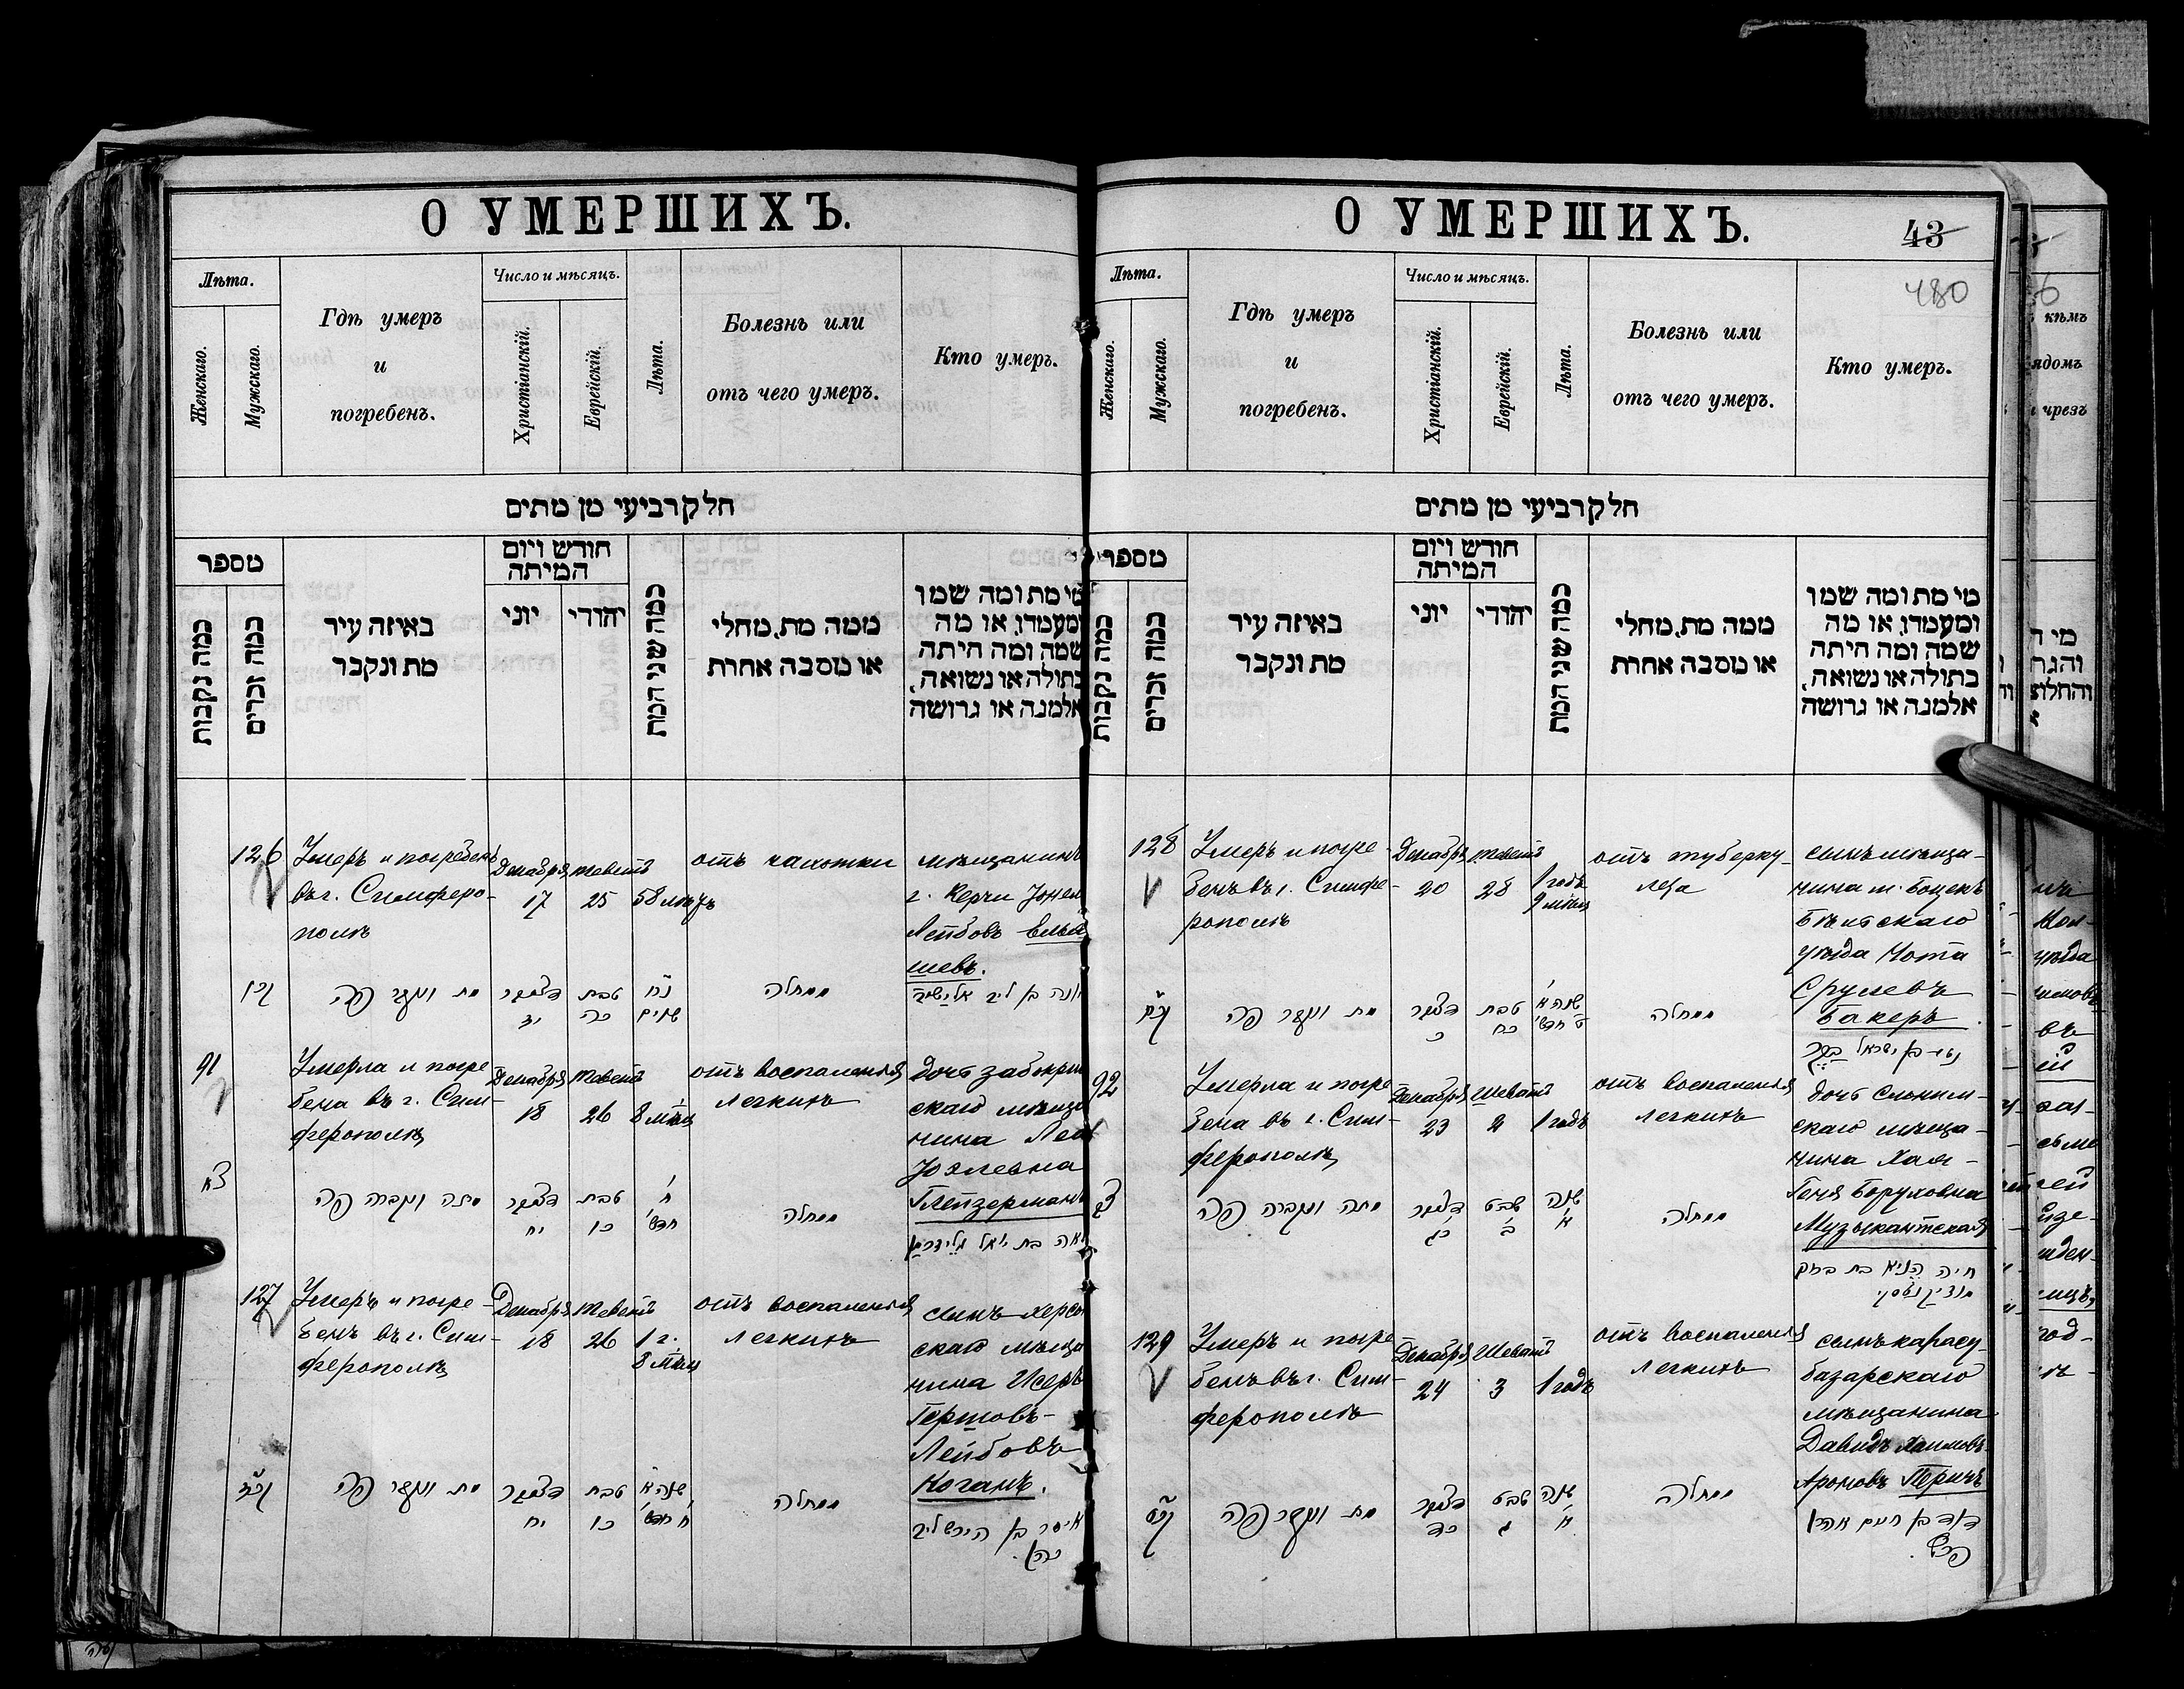 О УМЕРШИХЪ.
Лѣта.
Женскаго.
Мужскаго.
Гдѣ умеръ
и
погребенъ.
Число и мѣсяцъ.
Христіанскій.
Еврейскій.
Лѣта.
Болезнь или
отъ чего умеръ.
Кто умеръ.
חלק רביעי מן מתים
מספר
כמה נקבות
כמה זכרים
באיזה עיר
מת ונקבר
חודש ויום
המיתה
יוני
יהודי
כמה שני המת
ממה מת, מחלי
או מסבה אחרת
מי מת ומה שמו
ומעמדו, או מה
שמה ומה היתה
בתולה או נשואה,
אלמנה או גרושה
126
Умеръ и погребенъ
въ г. Симферо-
полѣ
Декабря
17
Тевета
25
58 лѣтъ
отъ чахотки
мѣщанинъ
г. Керчи
Лейбовъ
шевъ.
קכו
מת ונקבר פה
דצמבר
יז
טבת
כה
נח
שנים
ממחלה
יונה בן ליב אלישיב
91
Умерла и погре
бена въ г. Сим-
ферополѣ
Декабря
18
Тевета
26
8 мѣсц
отъ воспаленія
легкихъ
дочь
скаго мѣща
нина
צא
מתה ונקברה פה
דצמבר
יח
טבת
כו
ח
חדש'
ממחלה
לאה בת יואל
127
Умеръ и погре-
бенъ въ г. Сим-
ферополѣ
Декабря
18
Тевета
26
1 г.
8 мѣсц
отъ воспаленія
легкихъ
сынъ херсо
скаго мѣща
нина Исеръ
Гершовъ-
Лейбовъ
Коганъ.
קכז
מת ונקבר פה
דצמבר
יח
טבת
כו
שנה א
ח חדש'
ממחלה
איסר בן הירש ליב
כהן.
О УМЕРШИХЪ.
43
480
Лѣта.
Женскаго.
Мужскаго.
Гдѣ умеръ
и
погребенъ.
Число и мѣсяцъ.
Христіанскій.
Еврейскій.
Лѣта.
Болезнь или
отъ чего умеръ.
Кто умеръ.
חלק רביעי מן מתים
מספר
כמה נקבות
כמה זכרים
באיזה עיר
מת ונקבר
חודש ויום
המיתה
יוני
יהודי
כמה שני המת
ממה מת, מחלי
או מסבה אחרת
מי מת ומה שמו
ומעמדו, או מה
שמה ומה היתה
בתולה או נשואה,
אלמנה או גרושה
128
Умеръ и погре-
бенъ въ г. Симфе-
рополѣ
Декабря
20
Тевета
28
1 годъ
9 мѣсц
отъ туберку-
леза
сынъ мѣща-
нина м. Боцекъ
Бѣльскаго
уѣзда Нота
Срулевъ
Бакеръ.
קכח
מת ונקבר פה
דצמבר
כ
טבת
כח
שנה א
ט חדש'
ממחלה
נטע בן ישראל בקר
92
Умерла и погре
бена въ г. Сим-
ферополѣ
Декабря
23
Шевата
2
1 годъ
отъ воспаленія
легкихъ
дочь слоним-
скаго мѣща-
нина Хая-
Геня Боруховна
Музыкантская
צב
מתה ונקברה פה
דצמבר
כג
שבט
ב
שנה
א
ממחלה
חיה העניא בת ברוך
129
Умеръ и погре
бенъ въ г. Сим-
ферополѣ
Декабря
24
Шевата
3
1 годъ
отъ воспаленія
легкихъ
сынъ карасу-
базарскаго
мѣщанина
Давидъ Хаимовъ-
Ароновъ Перичъ
קכט
מת ונקבר פה
דצמבר
כד
שבט
ג
שנה
א
ממחלה
דוד בן חיים אהרן